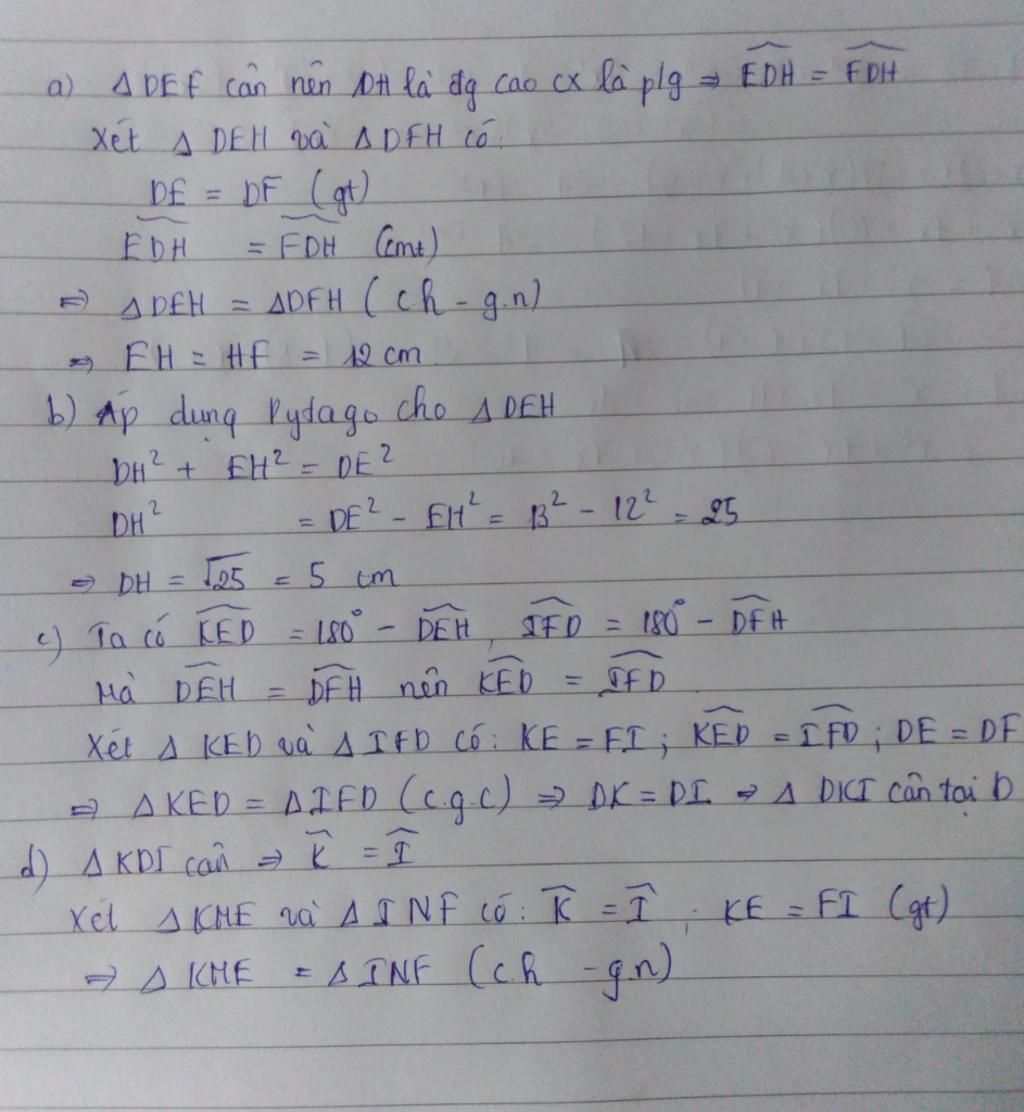 a) Δ DEF cân nên DH là đg cao cx là p/g ⇒ \widehat{EDH} = \widehat{FDH}
Xét Δ DEH và Δ DFH có:
DE = DF (gt)
\widehat{EDH} = \widehat{FDH} (cmt)
⇒ Δ DEH = ΔDFH (ch - g.n)
⇒ EH = HF = 12 cm
b) Áp dụng Pytago cho Δ DEH
DH² + EH² = DE²
DH² = DE² - EH² = 13² - 12² = 25
⇒ DH = √25 = 5 cm
c) Ta có \widehat{KED} = 180° - \widehat{DEH}, \widehat{IFD} = 180° - \widehat{DFH}
Mà \widehat{DEH} = \widehat{DFH} nên \widehat{KED} = \widehat{IFD}
Xét Δ KED và Δ IFD có: KE = FI; \widehat{KED} = \widehat{IFD}; DE = DF
⇒ Δ KED = Δ IFD (c.g.c) ⇒ DK = DI ⇒ Δ DKI cân tại D
d) Δ KDI cân ⇒ \widehat{K} = \widehat{I}
Xét Δ KME và Δ INF có: \widehat{K} = \widehat{I}; KE = FI (gt)
⇒ Δ KME = Δ INF (c.h - g.n)